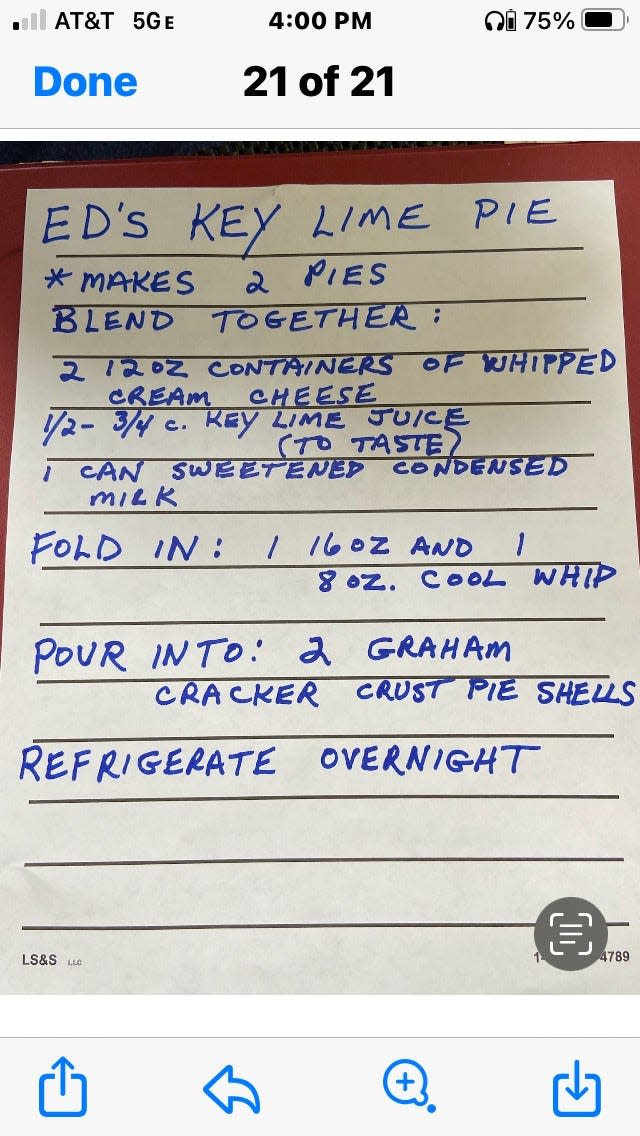 AT&T 5GE 4:00 PM 75%
Done 21 of 21
ED'S KEY LIME PIE
* MAKES 2 PIES
BLEND TOGETHER:
2 12 OZ CONTAINERS OF WHIPPED
CREAM CHEESE
1/2 - 3/4 C. KEY LIME JUICE
(TO TASTE)
1 CAN SWEETENED CONDENSED
MILK
FOLD IN: 1 16 OZ AND 1
8 OZ. COOL WHIP
POUR INTO: 2 GRAHAM
CRACKER CRUST PIE SHELLS
REFRIGERATE OVERNIGHT
LS&S LLC 1- 4789